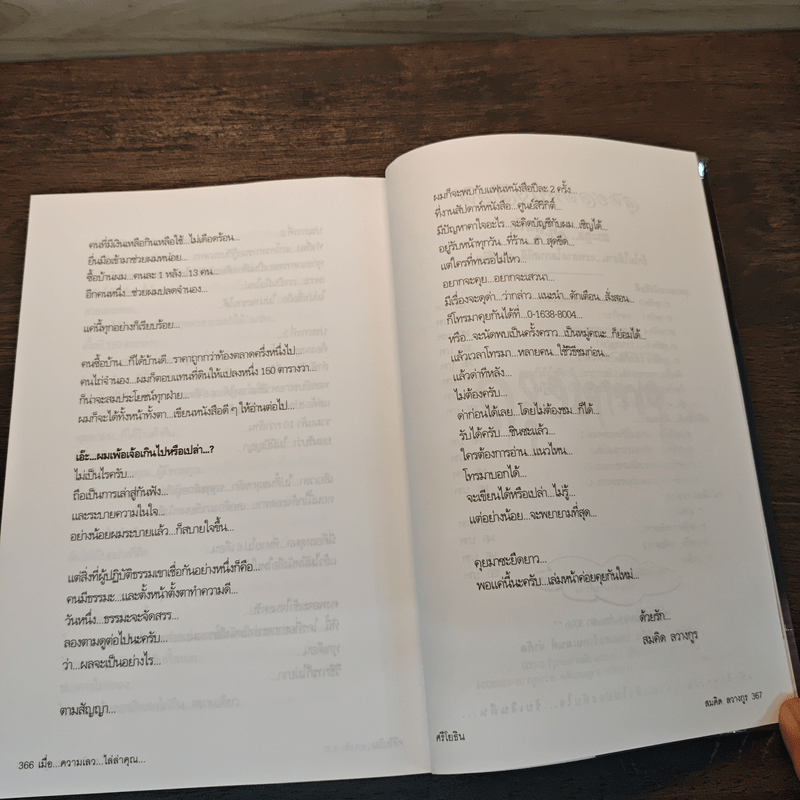 คนที่มีเงินเหลือกินเหลือใช้...ไม่เดือดร้อน...
ยื่นมือเข้ามาช่วยผมหน่อย...
ซื้อบ้านผม...คนละ 1 หลัง...13 คน...
อีกคนหนึ่ง...ช่วยผมปลดจำนอง...
แค่นี้ทุกอย่างก็เรียบร้อย...
คนซื้อบ้าน...ก็ได้บ้านดี...ราคาถูกกว่าท้องตลาดครึ่งหนึ่งไป...
คนไถ่จำนอง...ผมก็ตอบแทนที่ดินให้แปลงหนึ่ง 150 ตารางวา...
ก็น่าจะสมประโยชน์ทุกฝ่าย...
ผมก็จะได้ตั้งหน้าตั้งตา...เขียนหนังสือดี ๆ ให้อ่านต่อไป...
เอ๊ะ...ผมเพ้อเจ้อเกินไปหรือเปล่า...?
ไม่เป็นไรครับ...
ถือเป็นการเล่าสู่กันฟัง...
และระบายความในใจ...
อย่างน้อยผมระบายแล้ว...ก็สบายใจขึ้น...
แต่สิ่งที่ผู้ปฏิบัติธรรมเขาเชื่อกันอย่างหนึ่งก็คือ...
คนมีธรรมะ...และตั้งหน้าตั้งตาทำความดี...
วันหนึ่ง...ธรรมะจะจัดสรร...
ลองตามดูต่อไปนะครับ...
ว่า...ผลจะเป็นอย่างไร...
ตามสัญญา...
366 เมื่อ...ความเลว...ไล่ล่าคุณ...
ผมก็จะพบกับแฟนหนังสือปีละ 2 ครั้ง...
ที่งานสัปดาห์หนังสือ...ศูนย์สิริกิติ์...
มีปัญหาคาใจอะไร...จะคิดบัญชีกับผม...เชิญได้...
อยู่รับหน้าทุกวัน...ที่ร้าน...ฮา...สุดขีด...
แต่ใครที่ทนรอไม่ไหว...
อยากจะคุย...อยากจะเสวนา...
มีเรื่องจะดุด่า...ว่ากล่าว...แนะนำ...ตักเตือน...สั่งสอน...
ก็โทรมาคุยกันได้ที่...0-1638-8004...
หรือ...จะนัดพบเป็นครั้งคราว...เป็นหมู่คณะ...ก็ย่อมได้...
แล้วเวลาโทรมา...หลายคน...ใช้วิธีชมก่อน...
แล้วด่าทีหลัง...
ไม่ต้องครับ...
ด่าก่อนได้เลย...โดยไม่ต้องชม...ก็ได้...
รับได้ครับ...ชินซะแล้ว...
ใครต้องการอ่าน...แนวไหน...
โทรมาบอกได้...
จะเขียนได้หรือเปล่า...ไม่รู้...
แต่อย่างน้อย...จะพยายามที่สุด...
คุยมาซะยืดยาว...
พอแค่นี้นะครับ...เล่มหน้าค่อยคุยกันใหม่...
ด้วยรัก...
สมคิด ลวางกูร
ศรีโยธิน
สมคิด ลวางกูร 367